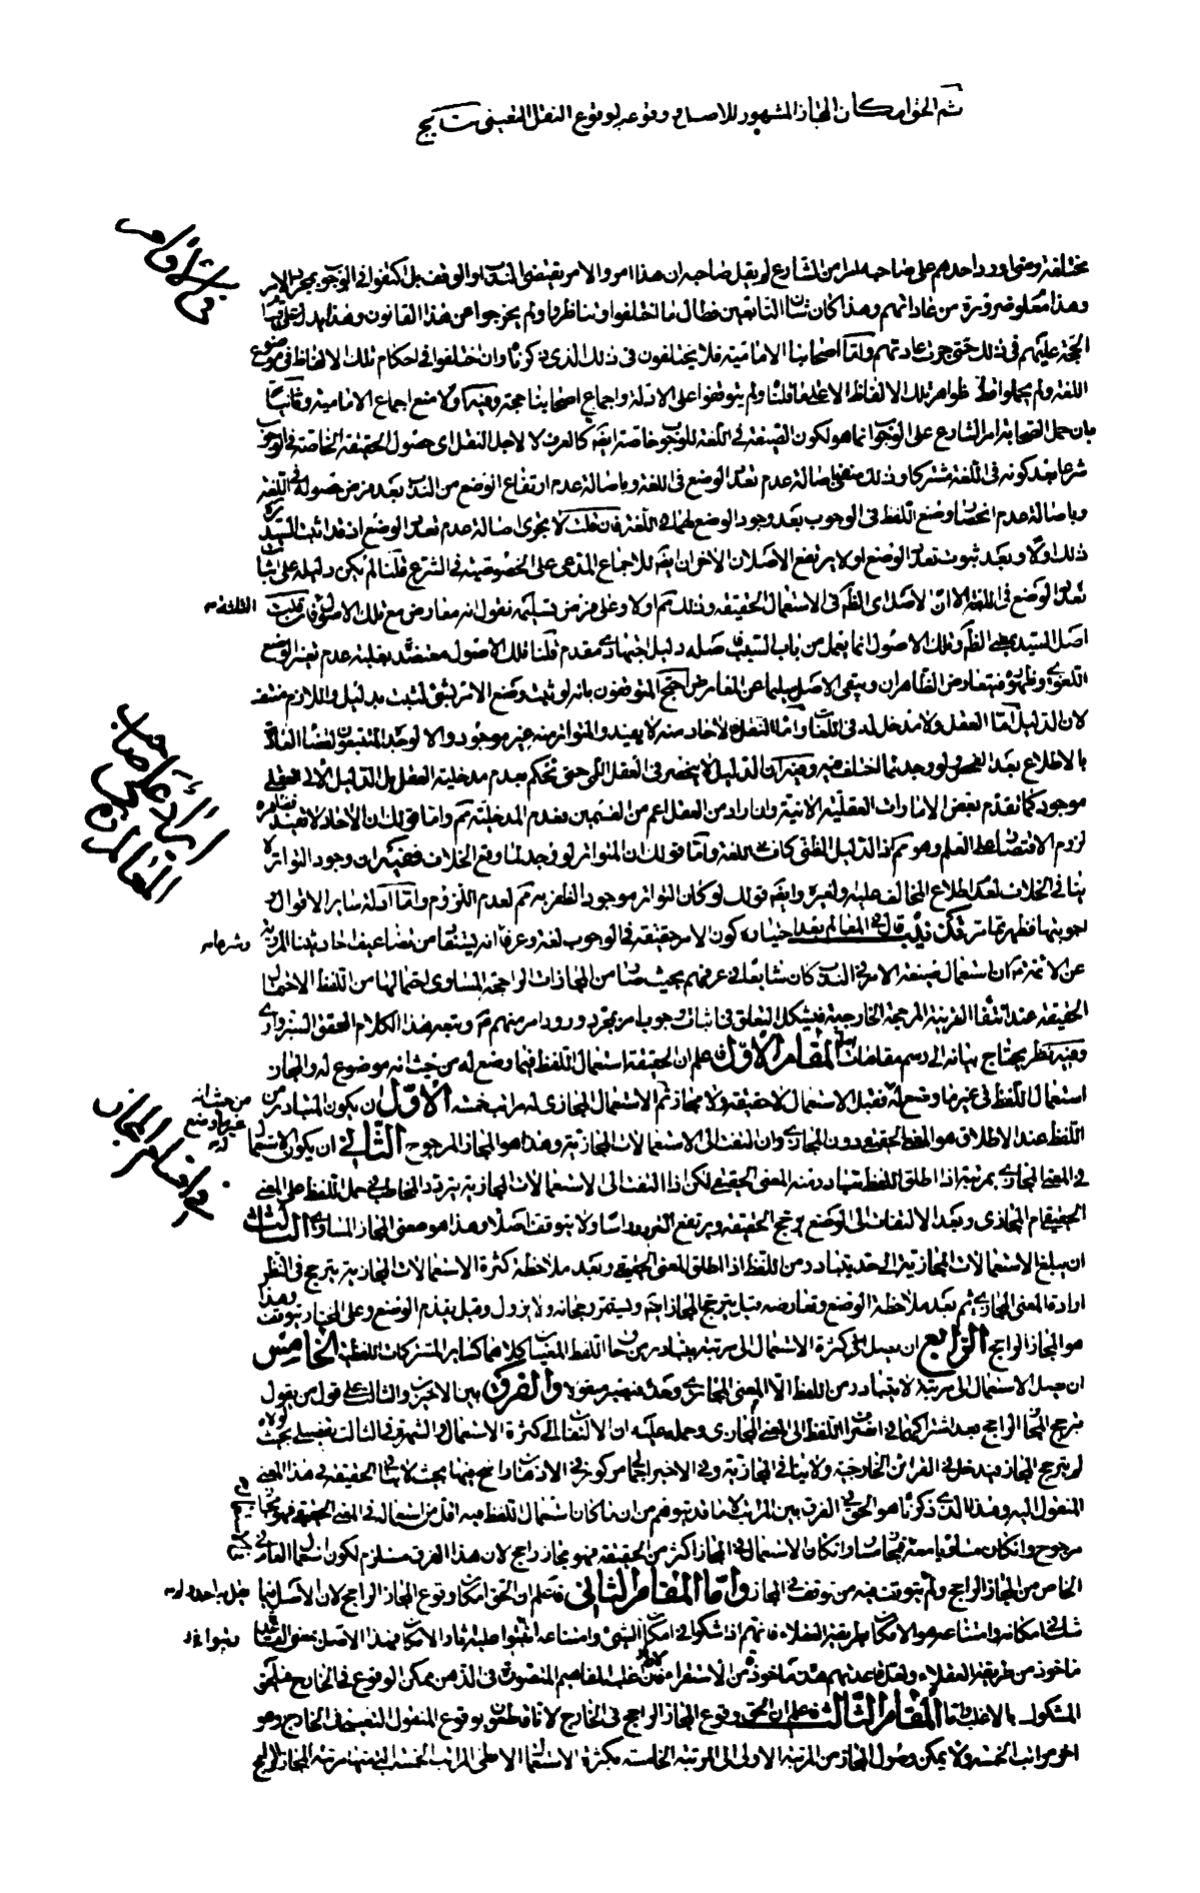 ثم الحق امكان المجاز المشهور للاصل وقوعه لوقوع النقل التعيني
في الاقام
مختلفة ومتى اورد احدهم على صاحبه امرا من الشارع لم يقل صاحبه ان هذا امر والامر يقتضى الندب او الوقف بل اكتفوا فى الوجوب بمجرد الامر
وهذا معلوم ضرورة من عاداتهم وهذا كان شان التابعين فطال ما اختلفوا وتناظروا ولم يخرجوا عن هذا القانون وهذا يدل على قيام
الحجة عليهم فى ذلك حتى جرت عادتهم واما اصحابنا الامامية فلا يختلفون فى ذلك الذى ذكرناه وان اختلفوا فى احكام تلك الالفاظ فى موضوع
اللغة ولم يحملوا ظواهر تلك الالفاظ الا على ما قلناه ولم يتوقفوا على الادلة واجماع اصحابنا حجة وفيه اولا منع اجماع الامامية وثانيا
بان حمل الصحابة امر الشارع على الوجوب انما هو لكون الصيغة فى اللغة للوجوب خاصة ايضا كالعرف لا لاجل النقل اى حصول الحقيقة الخاصة فى الوجوب
شرعا بعد كونه فى اللغة مشتركا وذلك مقتضى اصالة عدم تعدد الوضع فى اللغة وباصالة عدم ارتفاع الوضع من الندب بعد فرض حصوله فى اللغة
وباصالة عدم انحصار وضع اللفظ فى الوجوب بعد وجود الوضع لهما فى اللغة فان قلت لا يجرى اصالة عدم تعدد الوضع اذ قد اثبت السيد ره
ذلك اولا وبعد ثبوت تعدد الوضع اولا يرتفع الاصلان الاخران ايضا للاجماع المدعى على الخصوصية فى الشرع قلنا لم يكن دليله على اثبات
تعدد الوضع فى اللغة الا ان الاصل اى الظاهر فى الاستعمال الحقيقة وذلك مم اولا وعلى فرض تسليمه نقول انه معارض مع تلك الاصول فان قلت
الثلثة صح
اصل السيد يعطى الظن وتلك الاصول انما يعمل من باب السبب فاصله دليل اجتهادى مقدم قلنا تلك الاصول معتضدة بغلبة عدم تغير الوضع
اللغوى وظهوره فتعارض الظاهران ويبقى الاصل سليما عن المعارض احتج المتوقفون بانه لو ثبت وضع الامر لشئ لثبت بدليل واللازم منتف
لان الدليل اما العقل ولا مدخل له فى اللغات واما النقل فالاحاد منه لا يفيد والمتواتر منه غير موجود والا لوجد المتتبعون لقضاء العادة
بالاطلاع بعد الفحص ولو وجد لما اختلف فيه وفيه ان الدليل لا ينحصر فى العقل اللمى حتى تحكم بعدم مدخلية العقل بل الدليل الانى العقلى
موجود كما تقدم بعض الامارات العقلية الانية وان اراد من العقل اعم من القسمين فعدم المدخلية مم واما قولك ان الاحاد لا تفيد فظاهره
ايراد على صاحب المعالم وفى
لزوم الاقتصار على العلم وهو مم كذا الدليل الظنى كاف فى اللغة واما قولك ان المتواتر لو وجد لما وقع الخلاف ففيه ان وجود التواتر لا
ينافى الخلاف لعدم اطلاع المخالف عليه ولغيره وايضا قولك لو كان التواتر موجودا لظفر به مم لعدم اللزوم واما ادلة ساير الاقوال و
اجوبتها فظهر مما مر تذنيب قال فى المعالم بعد اختياره كون الامر حقيقة فى الوجوب لغة وعرفا انه يستفاد من تضاعيف احاديثنا المروية
وشرعا صح
عن الائمة ان استعمال صيغة الامر فى الندب كان شايعا فى عرفهم بحيث صار من المجازات الراجحة المساوى احتمالها من اللفظ لاحتمال
الحقيقة عند انتفاء القرينة المرجحة الخارجية فيشكل التعلق فى اثبات وجوب امر بمجرد ورود امر منهم وتبعه هذا الكلام المحقق السبزوارى
وفيه نظر يحتاج بيانه الى رسم مقامات المقام الاول اعلم ان الحقيقة استعمال اللفظ فيما وضع له من حيث انه موضوع له والمجاز
استعمال اللفظ فى غير ما وضع له فقبل الاستعمال لا حقيقة ولا مجاز ثم الاستعمال المجازى له مراتب خمسة الاول ان يكون المتبادر من
من حيث انه غير ما وضع له
فى اقسام المجاز
اللفظ عند الاطلاق هو المعنى الحقيقى دون المجازى وان التفت الى الاستعمالات المجازية وهذا هو المجاز المرجوح الثانى ان يكون الاستعمال
فى المعنى المجازى بمرتبة اذا اطلق اللفظ تبادر منه المعنى الحقيقى لكن اذا التفت الى الاستعمالات المجازية يتردد المخاطب فى حمل اللفظ على المعنى
الحقيقى ام المجازى وبعد الالتفات الى الوضع يرجح الحقيقة ويرتفع التردد راسا ولا يتوقف اصلا وهذا هو معنى المجاز المساوى الثالث
ان يبلغ الاستعمالات المجازية الى حد يتبادر من اللفظ اذا اطلق المعنى الحقيقى وبعد ملاحظة كثرة الاستعمالات المجازية يترجح فى النظر
ارادة المعنى المجازى ثم بعد ملاحظة الوضع وتعارضه قيل يترجح المجاز ايضا ويستمر رجحانه ولا يزول وقيل يقدم الوضع وعلى المختار يتوقف وهذا
هو المجاز الراجح الرابع ان يصل فى كثرة الاستعمال الى مرتبة يتبادر من حاق اللفظ المعنيان كلاهما كساير المشتركات اللفظية الخامس
ان يصل الاستعمال الى مرتبة لا يتبادر من اللفظ الا المعنى المجازى وحده فيصير منقولا والفرق بين الاخيرين والثالث على قول من يقول
بترجح المجاز الراجح بعد اشتراكهما فى انصراف اللفظ الى المعنى المجازى وحمله عليه ان الالتفات الى كثرة الاستعمال والشهرة فى الثالث تفصيلى بحيث لولاه
لم يترجح المجاز فيدخل فى القرائن الخارجية ولا ينافى المجازية وفى الاخير اجمالى مركوز فى الاذهان راسخ فيها بحيث لا ينافى الحقيقة فى هذا المعنى
المنقول اليه وهذا الذى ذكرناه هو الحق فى الفرق بين المراتب لا ما قد يتوهم من ان ما كان استعمال اللفظ فيه اقل من استعماله فى المعنى الحقيقى فهو مجاز
مرجوح وان كان مساويا معه فمجاز مساو وان كان الاستعمال فى المجاز اكثر من الحقيقة فهو مجاز راجح لان هذا الفرق مستلزم لكون استعمال العام فى
الخاص من المجاز الراجح ولم يتوقف فيه من توقف فى المجاز واما المقام الثانى فاعلم ان الحق امكان وقوع المجاز الراجح لان الاصل فيما
شك فى امكانه وامتناعه هو الامكان لطريقة العقلاء فانهم اذا شكوا فى امكان الشئ وامتناعه
ماخوذ من طريقة العقلاء ولعل قاعدتهم هذه ماخوذة من الاستقراء فان اغلب المفاهيم المتصورة فى الذهن ممكن الوقوع فى الخارج فيلحق
المشكوك بالاغلب واما المقام الثالث فاعلم ان الحق وقوع المجاز الراجح فى الخارج لانا قاطعون بوقوع المنقول التعينى فى الخارج وهو
اخر مراتب الخمسة ولا يمكن وصول المجاز من المرتبة الاولى الى المرتبة الخامسة بكثرة الاستعمال الا بطى المراتب الخمسة التى منها مرتبة المجاز الراجح